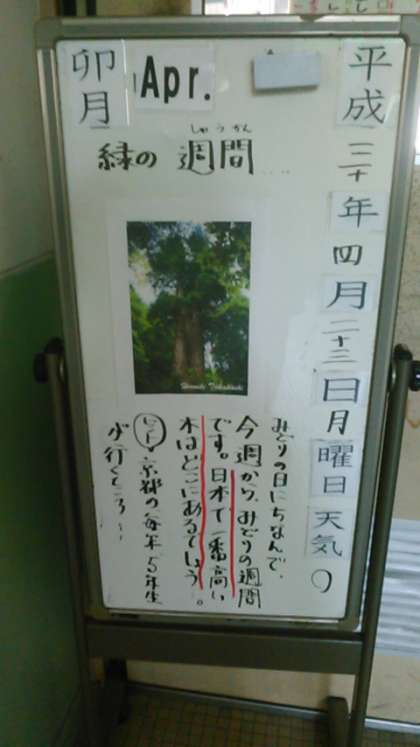 平成三十年四月二十三日月曜日天気
卯月
Apr.
しゅうかん
緑の週間……
みどりの日にちなんで、
今週から、みどりの週間
です。日本で一番高い
木はどこにあるでしょう。
ヒント 京都の毎年5年生
が行くところ……